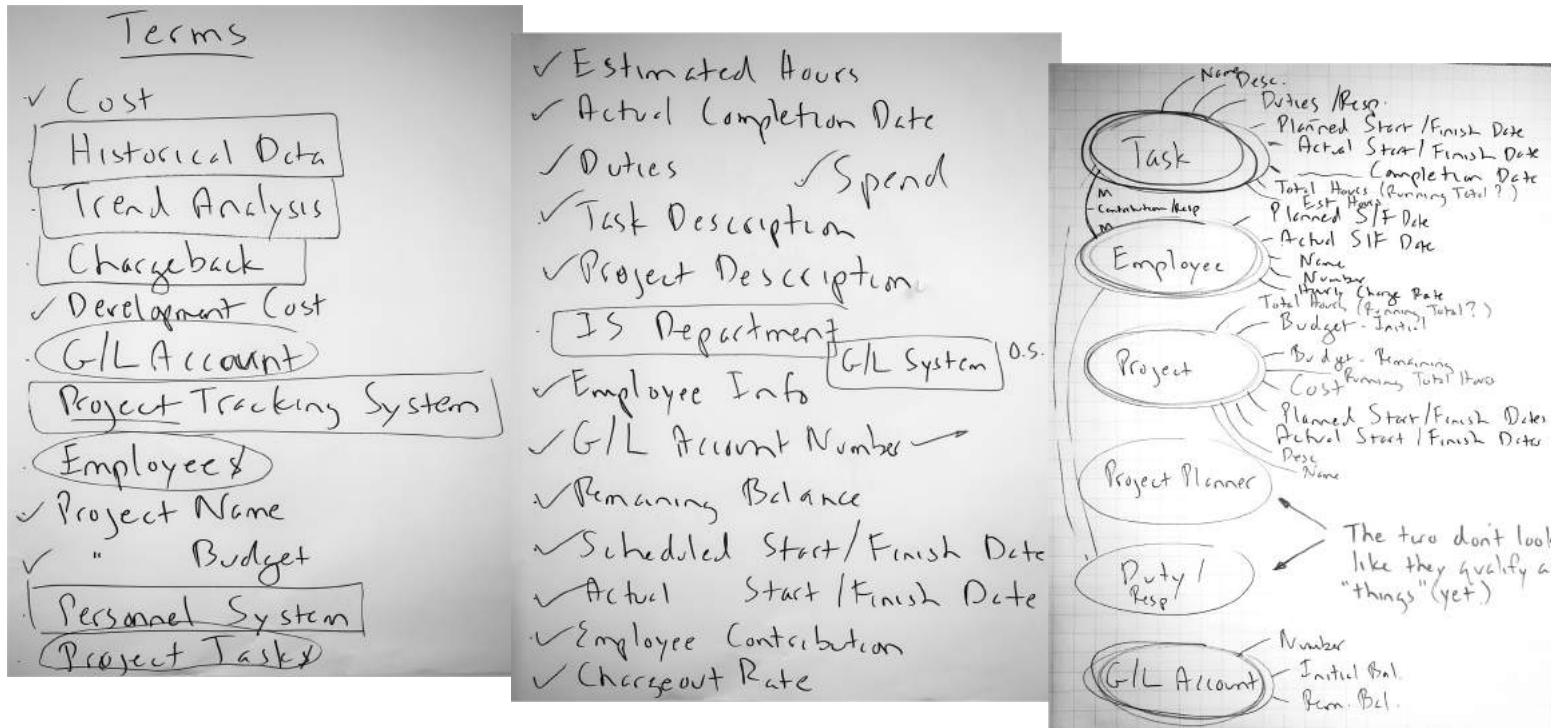 Terms
✓ Cost
Historical Data
Trend Analysis
Chargeback
✓ Development Cost
G/L Account
Project Tracking System
Employees
✓ Project Name
✓ " Budget
Personnel System
Project Tasks
✓ Estimated Hours
✓ Actual Completion Date
✓ Duties
✓ Spend
✓ Task Description
✓ Project Description
IS Department
G/L System O.S.
✓ Employee Info
✓ G/L Account Number
✓ Remaining Balance
✓ Scheduled Start/Finish Date
✓ Actual Start/Finish Date
✓ Employee Contribution
✓ Chargeout Rate
Name
Desc.
Duties/Resp.
Planned Start/Finish Date
Actual Start/Finish Date
Completion Date
Total Hours (Running Total?)
Est Hours
Task
M
Contribution/Resp
M
Planned S/F Date
Actual S/F Date
Name
Number
Hourly Charge Rate
Employee
Total Hours (Running Total?)
Budget - Initial
Budget - Remaining
Running Total Hours
Cost
Planned Start/Finish Dates
Actual Start/Finish Dates
Desc
Name
Project
Project Planner
Duty/
Resp
The two don't look
like they qualify a
"things" (yet)
G/L Account
Number
Initial Bal.
Rem. Bal.